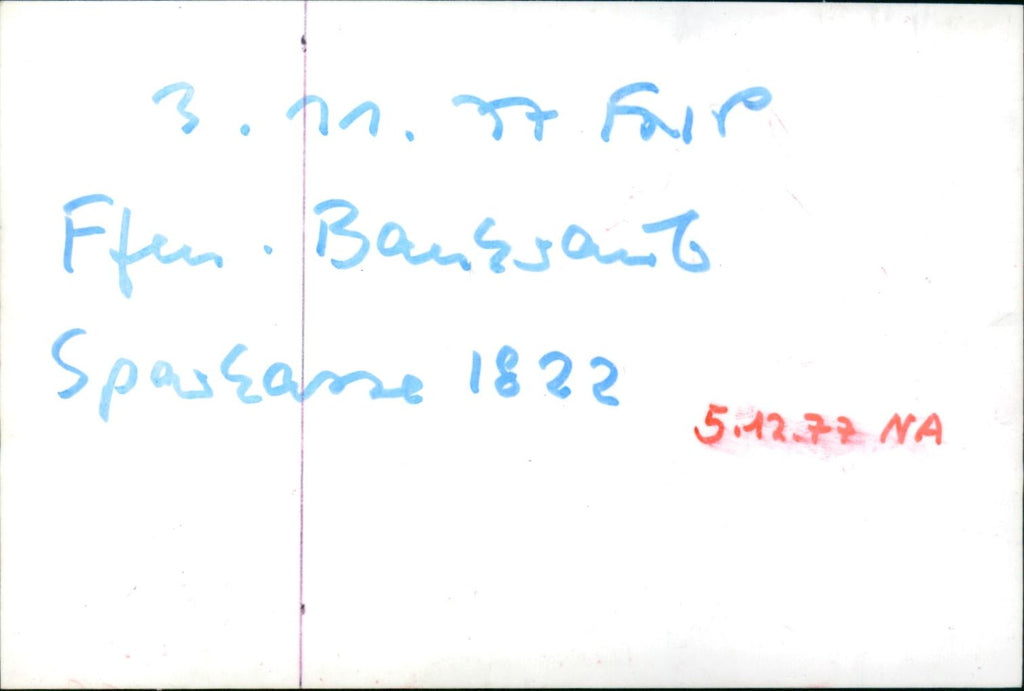 3.11.77 FNP
Ffm. Bankraub
Sparkasse 1822
5.12.77 NA